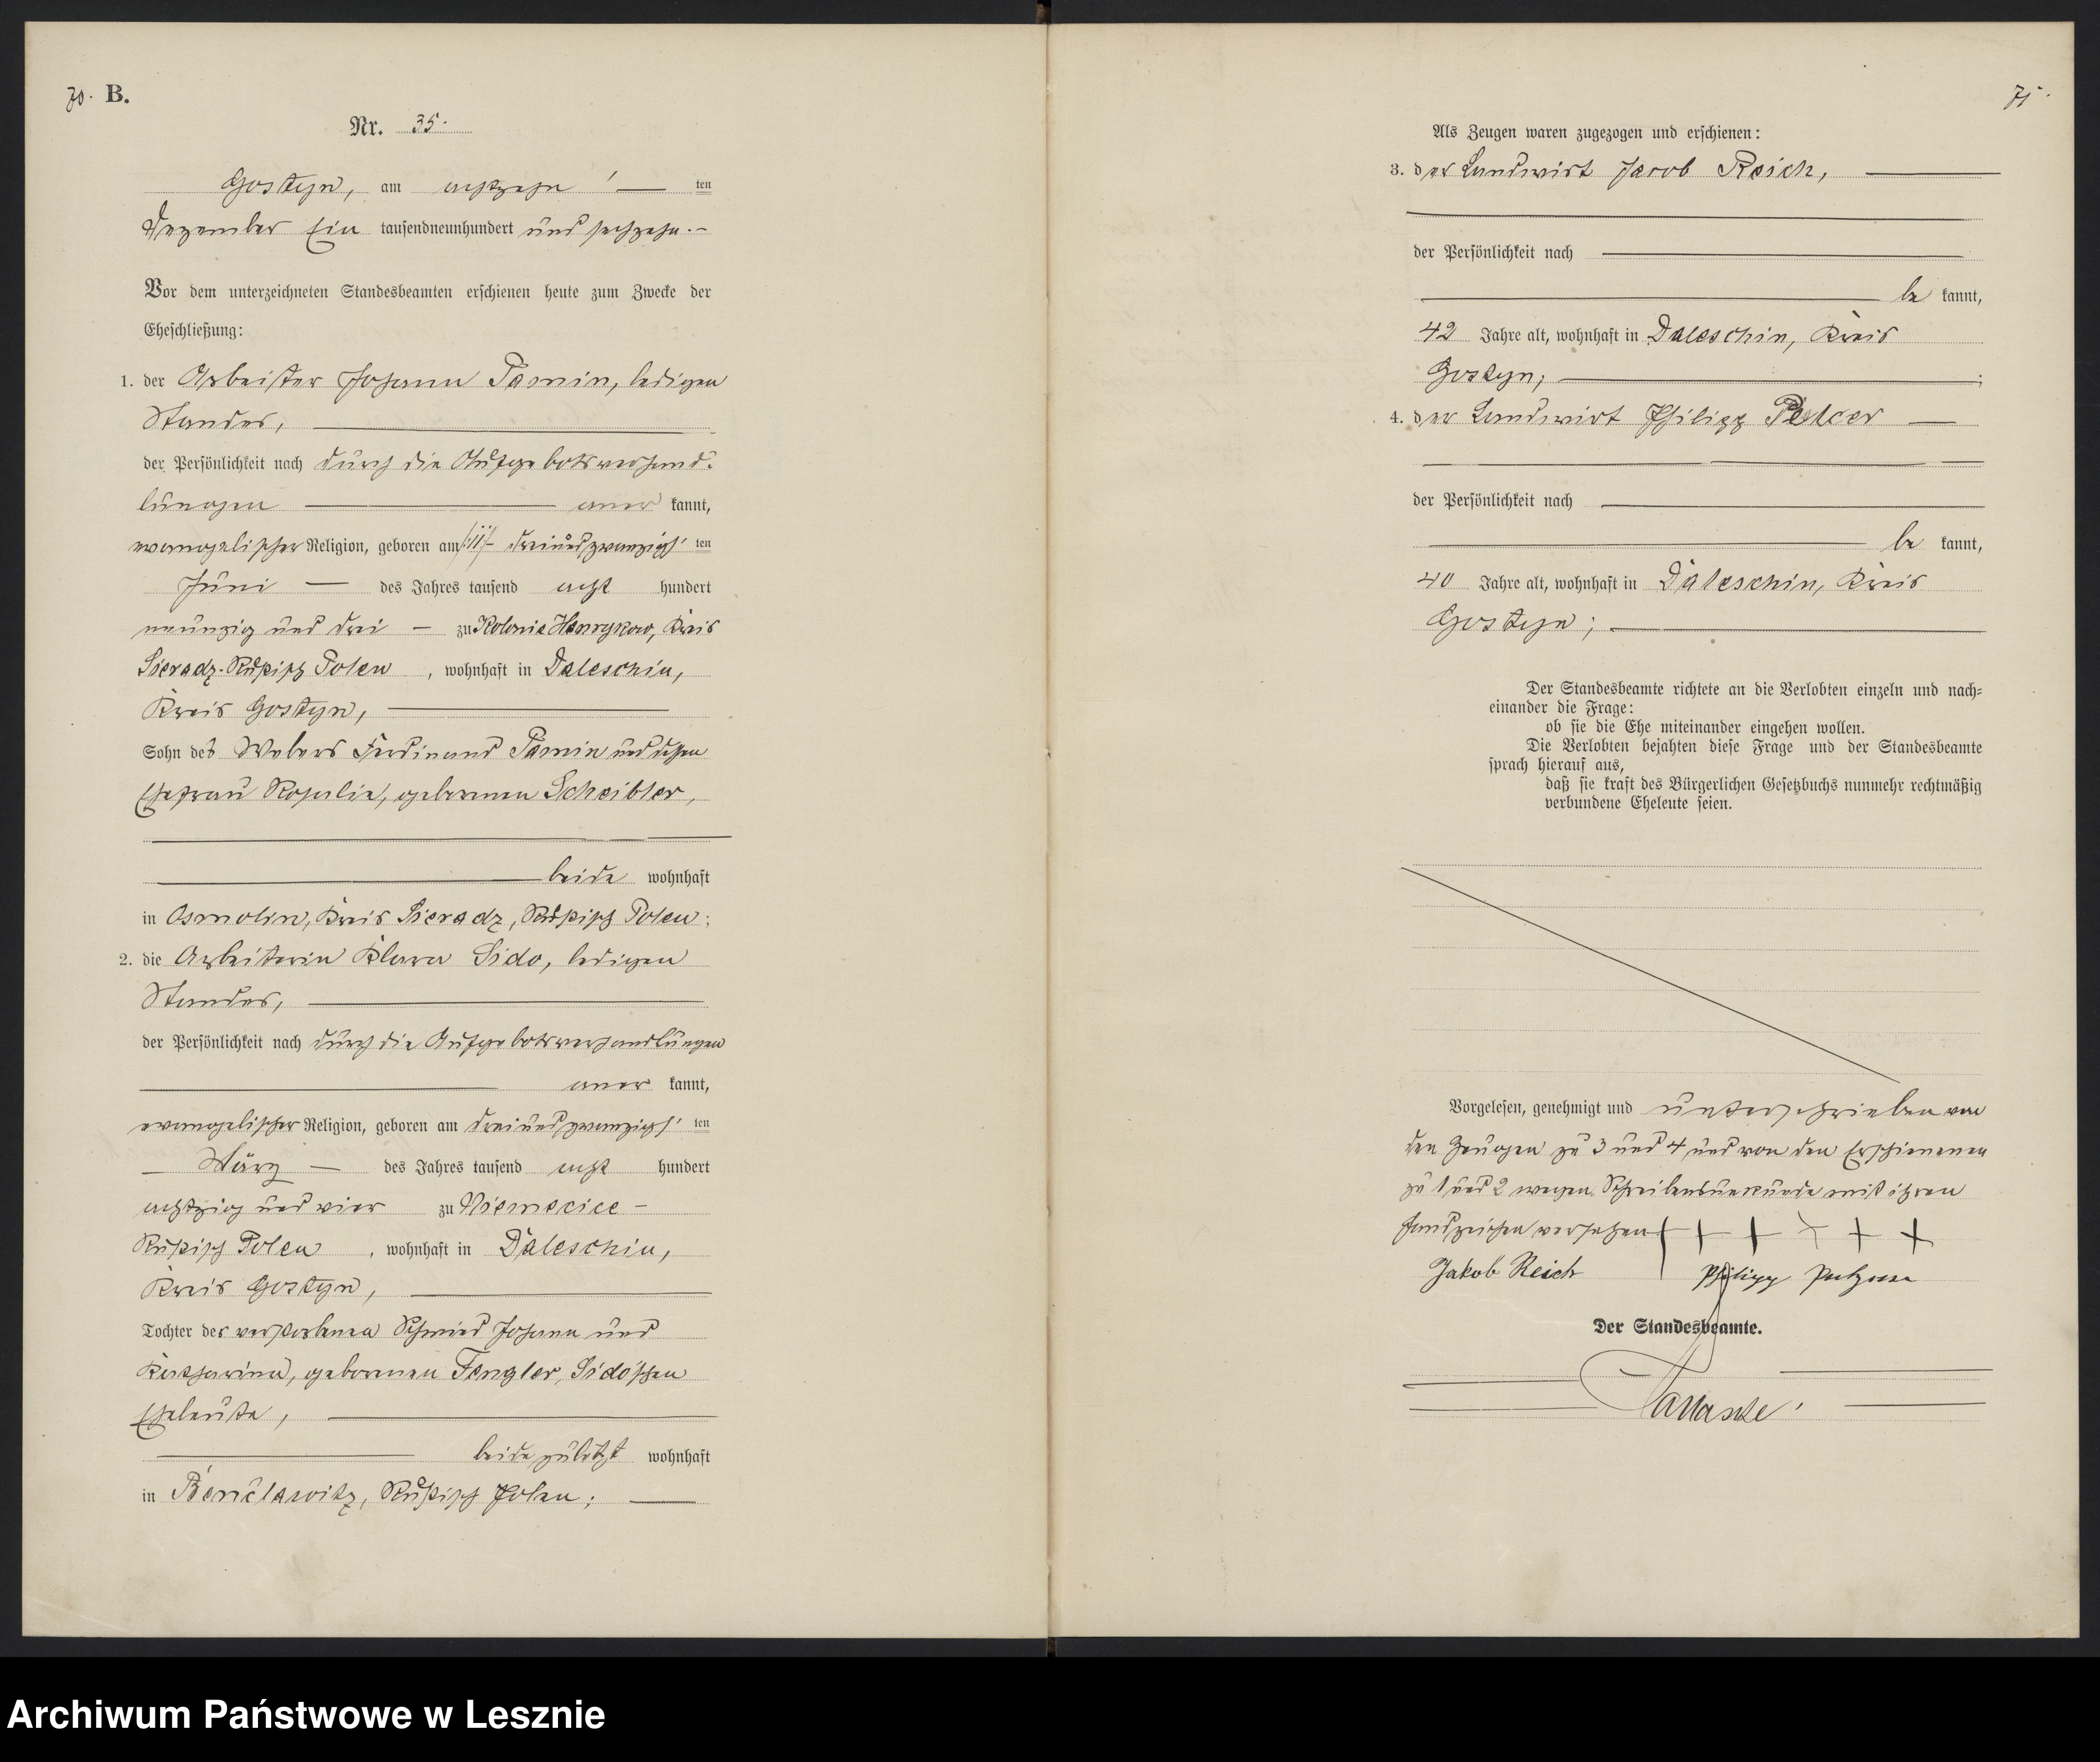 70. B.
Nr. 35.
Gostyn, am achtzehn ten
Dezember Ein tausendneunhundert und sechzehn.
Vor dem unterzeichneten Standesbeamten erschienen heute zum Zwecke der
Eheschließung:
1. der Arbeiter Johann Tomm, ledigen
Standes,
der Persönlichkeit nach durch die Aufgebotsverhand-
lungen aner kannt,
evangelischer Religion, geboren am dreiundzwanzigs ten
Juni des Jahres tausend acht hundert
neunzig und drei zu Kolonie Henrykow, Kreis
Sieradz-Russisch Polen, wohnhaft in Daleschin,
Kreis Gostyn,
Sohn des Webers Ferdinand und dessen
Ehefrau Rosalie, geborenen Scheibler,
beide wohnhaft
in Osmolin, Kreis Sieradz, Russisch Polen;
2. die Arbeiterin Klara Sido, ledigen
Standes,
der Persönlichkeit nach durch die Aufgebotsverhandlungen
aner kannt,
evangelischer Religion, geboren am dreiundzwanzigs ten
März des Jahres tausend acht hundert
achtzig und vier zu
Russisch Polen, wohnhaft in Daleschin,
Kreis Gostyn,
Tochter der verstorbenen Schmied Johann und
Katharina, geborenen Fengler, Sido'schen
Eheleute,
beide zuletzt wohnhaft
in Russisch Polen;
Als Zeugen waren zugezogen und erschienen:
3. der Landwirt Jacob Reich,
der Persönlichkeit nach
be kannt,
42 Jahre alt, wohnhaft in Daleschin, Kreis
Gostyn;
4. der Landwirt Philipp
der Persönlichkeit nach
be kannt,
40 Jahre alt, wohnhaft in Daleschin, Kreis
Gostyn;
Der Standesbeamte richtete an die Verlobten einzeln und nach-
einander die Frage:
ob sie die Ehe miteinander eingehen wollen.
Die Verlobten bejahten diese Frage und der Standesbeamte
sprach hierauf aus,
daß sie kraft des Bürgerlichen Gesetzbuchs nunmehr rechtmäßig
verbundene Eheleute seien.
Vorgelesen, genehmigt und unterschrieben von
den Zeugen zu 3 und 4 und von den Erschienenen
zu 1 und 2 wegen Schreibensunkunde mit ihren
Handzeichen versehen + + + + + +
Jakob Reich Philipp
Der Standesbeamte.
Archiwum Państwowe w Lesznie